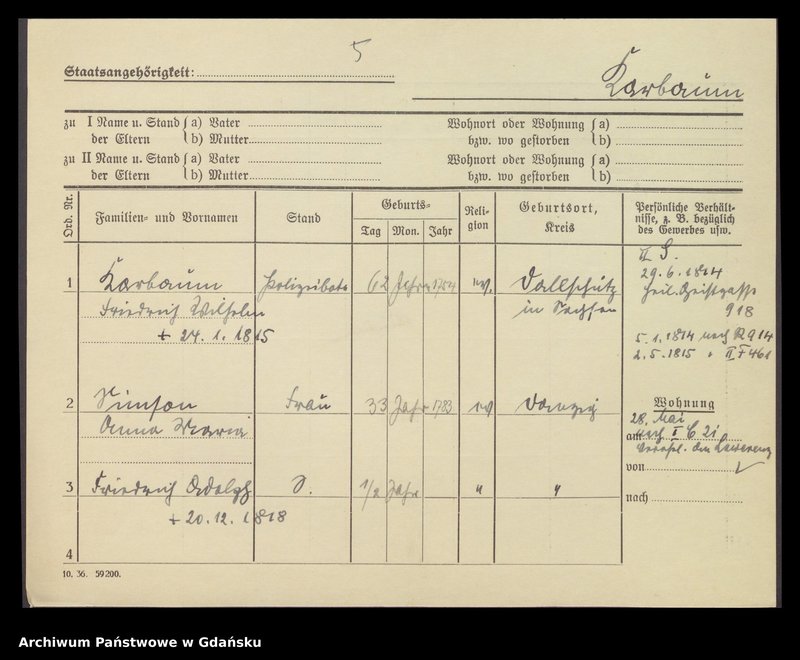 5
Staatsangehörigkeit:
Karbaum
zu I Name u. Stand a) Vater
der Eltern b) Mutter
Wohnort oder Wohnung a)
bzw. wo gestorben b)
zu II Name u. Stand a) Vater
der Eltern b) Mutter
Wohnort oder Wohnung a)
bzw. wo gestorben b)
Ord. Nr.
Familien- und Vornamen
Stand
Geburts-
Tag Mon. Jahr
Reli-
gion
Geburtsort,
Kreis
Persönliche Verhält-
nisse, z. B. bezüglich
des Gewerbes usw.
1 Karbaum Polizeibote 62 Jahr 1754 ev.
Friedrich Wilhelm in Sachsen
+ 24. 1. 1815
II S.
29.6.1814
Heil. Geistgasse
918
5.1.1814 nach R 914
2.5.1815 " II F 461
2 Simson Frau 33 Jahr 1783 ev Danzig
Anna Maria
Wohnung
28. Mai
am nach I C 21
von
nach
3 Friedrich Adolph S. 1/2 Jahr " "
+ 20.12.1818
4
10. 36. 59200.
Archiwum Państwowe w Gdańsku